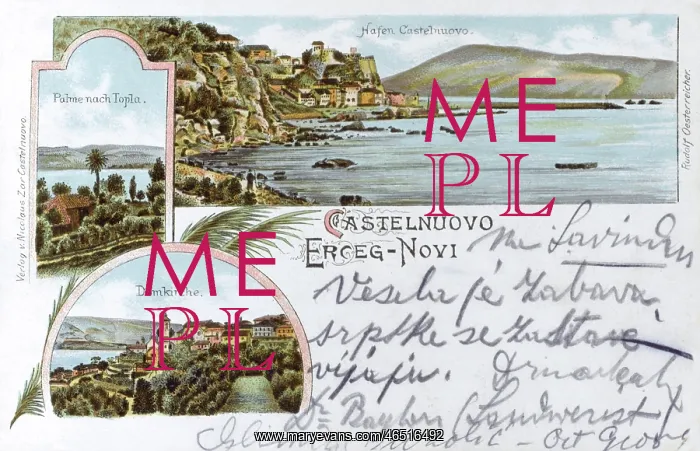 Hafen Castelnuovo.
Palme nach Topla.
Verlag v. Nicolaus Zar Castelnuovo.
Rudolf Oesterreicher.
ME
PL
CASTELNUOVO
ERCEG-NOVI
Domkirche.
ME
PL
na Savindan
Vesela je zabava,
srpske se zastave
vijaju.
Dr
www.maryevans.com/46516492